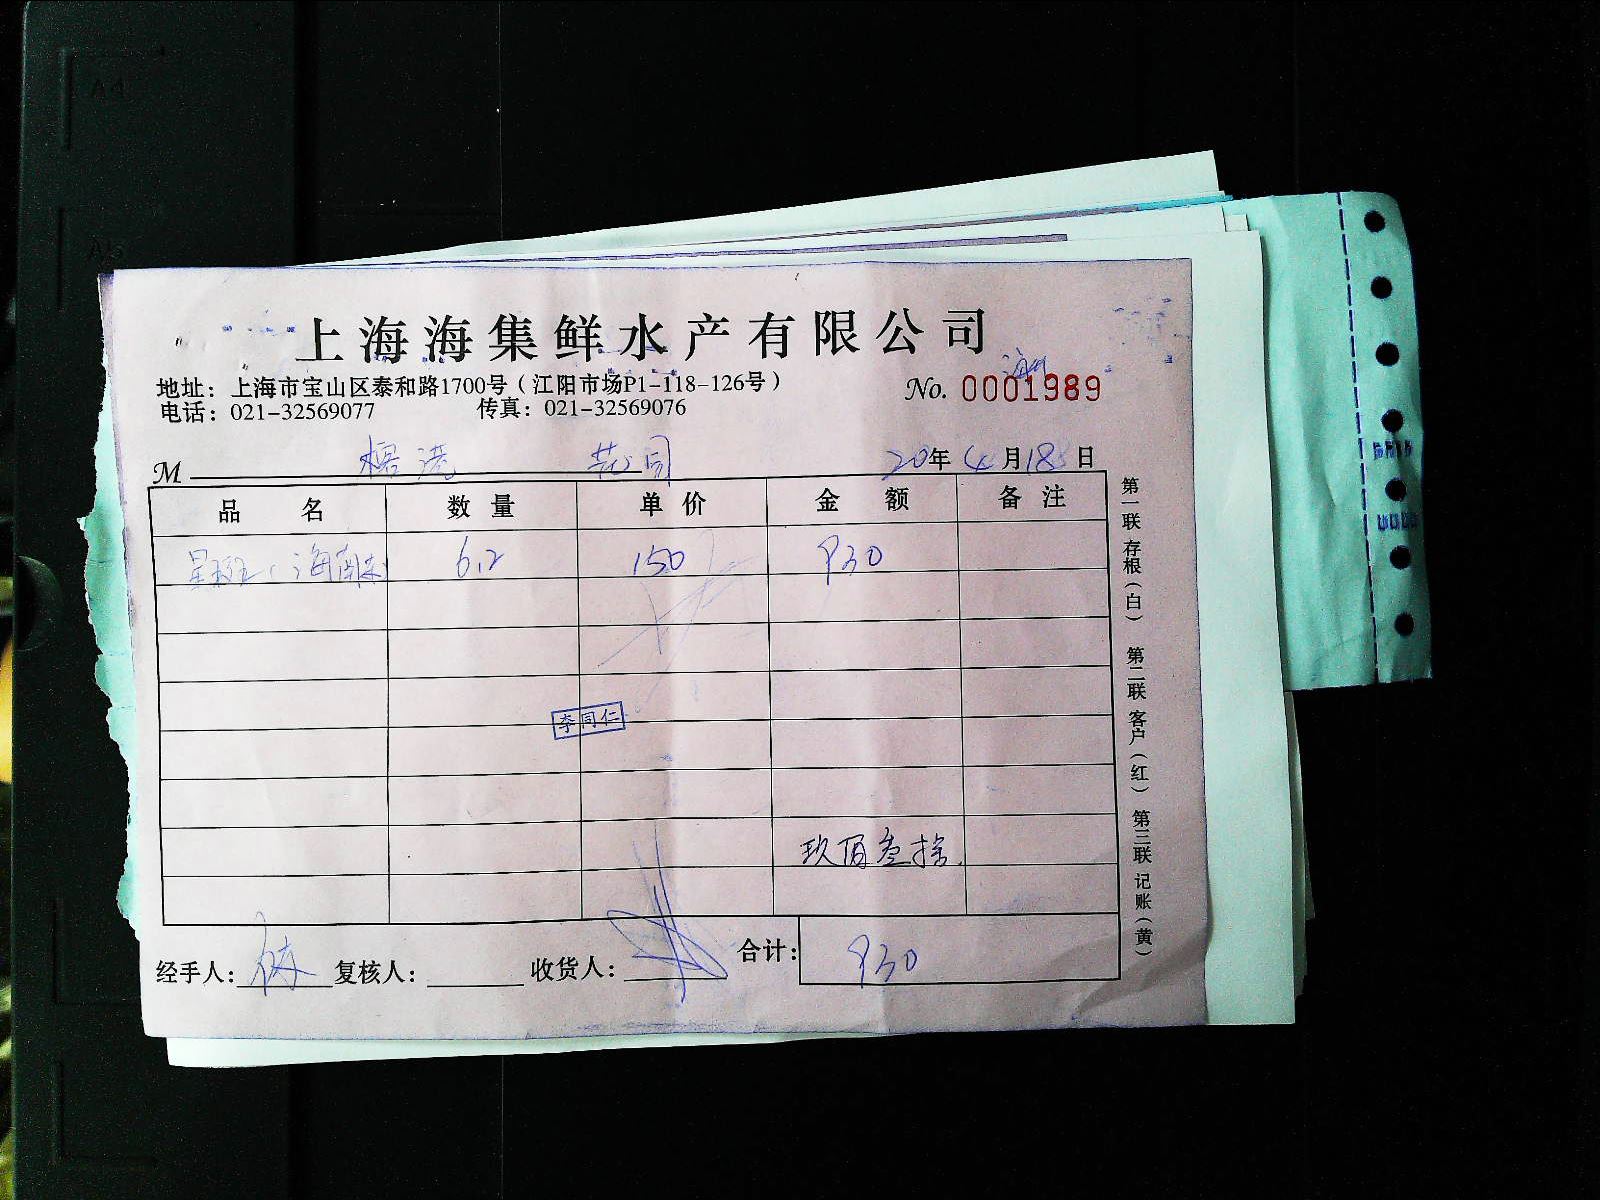 上海海集鲜水产有限公司
地址：上海市宝山区泰和路1700号（江阳市场P1-118-126号）
No. 0001989
电话：021-32569077 传真：021-32569076
M 花园 20年4月18日
品名 数量 单价 金额 备注
星斑（海南 6.2 150 930
李同仁
玖佰叁拾
经手人： 复核人： 收货人： 合计：930
第一联存根（白） 第二联客户（红） 第三联记账（黄）
A4
A5